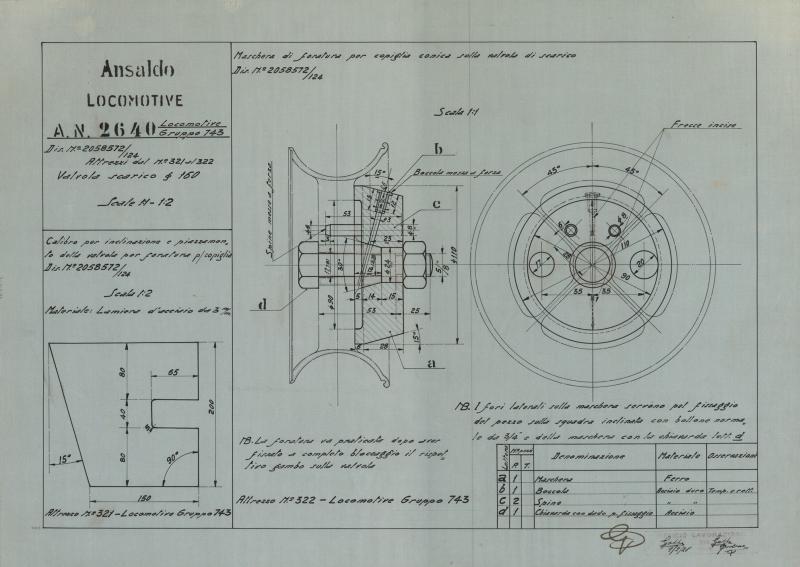 Ansaldo
LOCOMOTIVE
A.N. 2640 Locomotive
Gruppo 743
Dis. N° 2058572/124
Attrezzi del N° 321 al 322
Valvola scarico φ 160
Scala N- 1:2
Calibro per inclinazione e piazzamen-
to della valvola per foratura p/copiglia
Dis. N° 2058572/124
Scala 1:2
Materiale: Lamiera d'acciaio da 3 m/m
65
80
40
80
200
5
15°
90°
150
Attrezzo N° 321 - Locomotive Gruppo 743
Maschera di foratura per copiglia conica sulla valvola di scarico
Dis. N° 2058572/124
Scala 1:1
Frecce incise
b
Boccola messa a forza
Spine messe a forza
c
d
a
15°
53
23
30°
φ24
φ90
φ110
5 14 15
53
25
6
28
15°
45° 45°
φ8
110
90
17
20
55 35
NB. La foratura va praticata dopo aver
fissato a completo bloccaggio il rispet-
tivo gambo sulla valvola
Attrezzo N° 322 - Locomotive Gruppo 743
NB. I fori laterali sulla maschera servono pel fissaggio
del pezzo sulla squadra inclinata con bollone norma-
le da 3/4" e della maschera con la chiavarda lett. d
Lettera A. T. Denominazione Materiale Osservazioni
a 1 Maschera Ferro
b 1 Boccola Acciaio duro Temp. e rett.
c 2 Spine " "
d 1 Chiavarda con dado p. fissaggio Acciaio